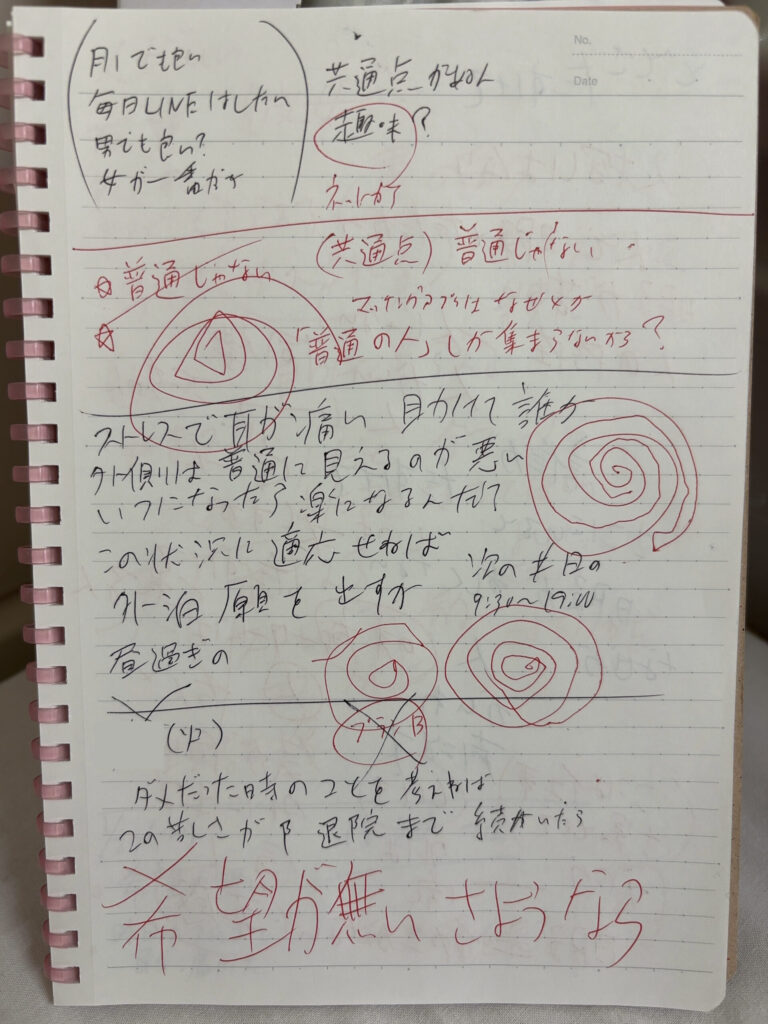 No.
Date
月1でも良い
毎日LINEはしたい
男でも良い?
女が一番だが
共通点がね
趣味?
ネットか?
(共通点) 普通じゃない
☆普通じゃない
☆
マッチングアプリは なぜ
「普通の人」しか集まらないから?
ストレスで耳が痛い 誰か
外側は普通に見えるのが悪い
いつになったら楽になるんだ?
この状況に適応せねば
外泊願を出すか
次の 日の
9:30~19:00
昼過ぎの
プランB
ダメだった時のことを考えねば
この苦しさが 退院まで続いたら
希望が無い さようなら